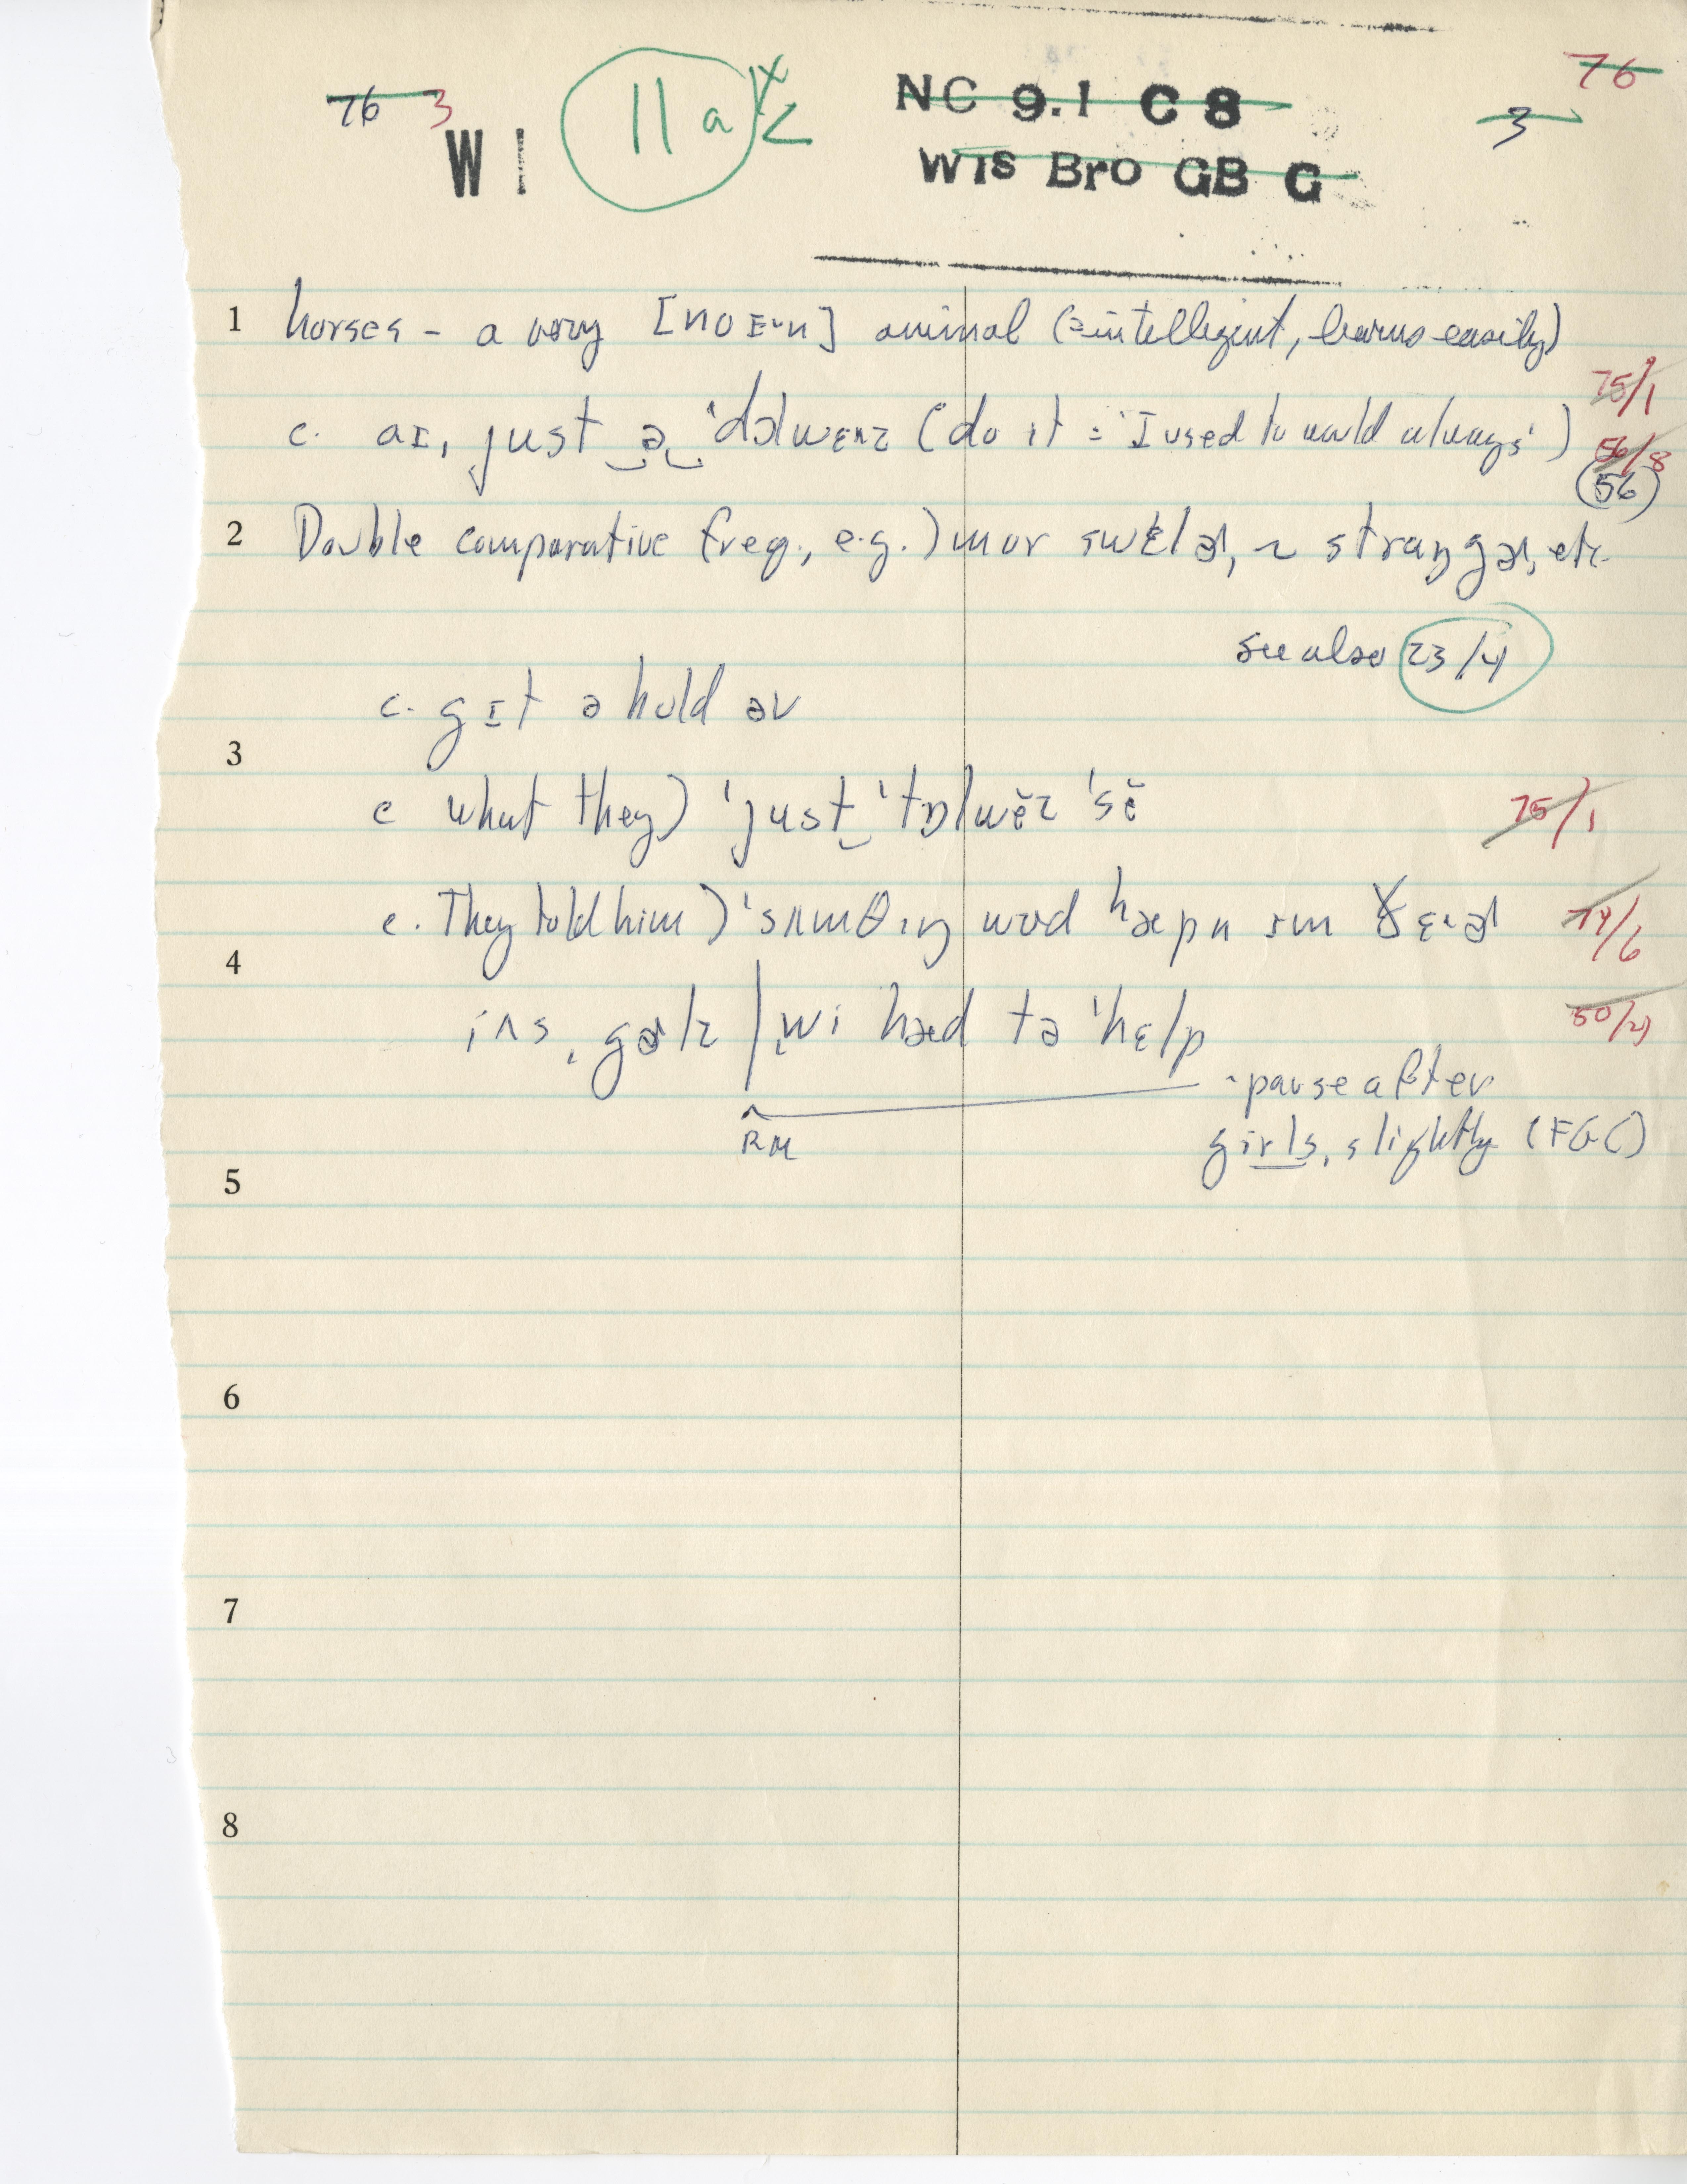 76 3
W I
11a
NC 9.1 C 8
Wis Bro GB G
76
3
1 horses - a very [noɪˑn] animal (= intelligent, learns easily)
75/1
c. aɪ, just ə 'dɔlwɛˑz (do it = 'I used to would always')
56/8
(56)
2 Double comparative freq., e.g.) mor swɛlɚ, ~ straŋgɚ, etc.
see also 23/4
c. gɪt ə hold əv
3
c what they) 'just 'tɒlwĕz 'sĕ
75/1
c. They told him) 'sʌmθɪŋ wʊd hæpn ɪm ðɛˑɚ
74/6
4
ʌs gɚlz | wi hæd tə 'hɛlp
50/4
- pause after
RM
girls, slightly (FGC)
5
6
7
8